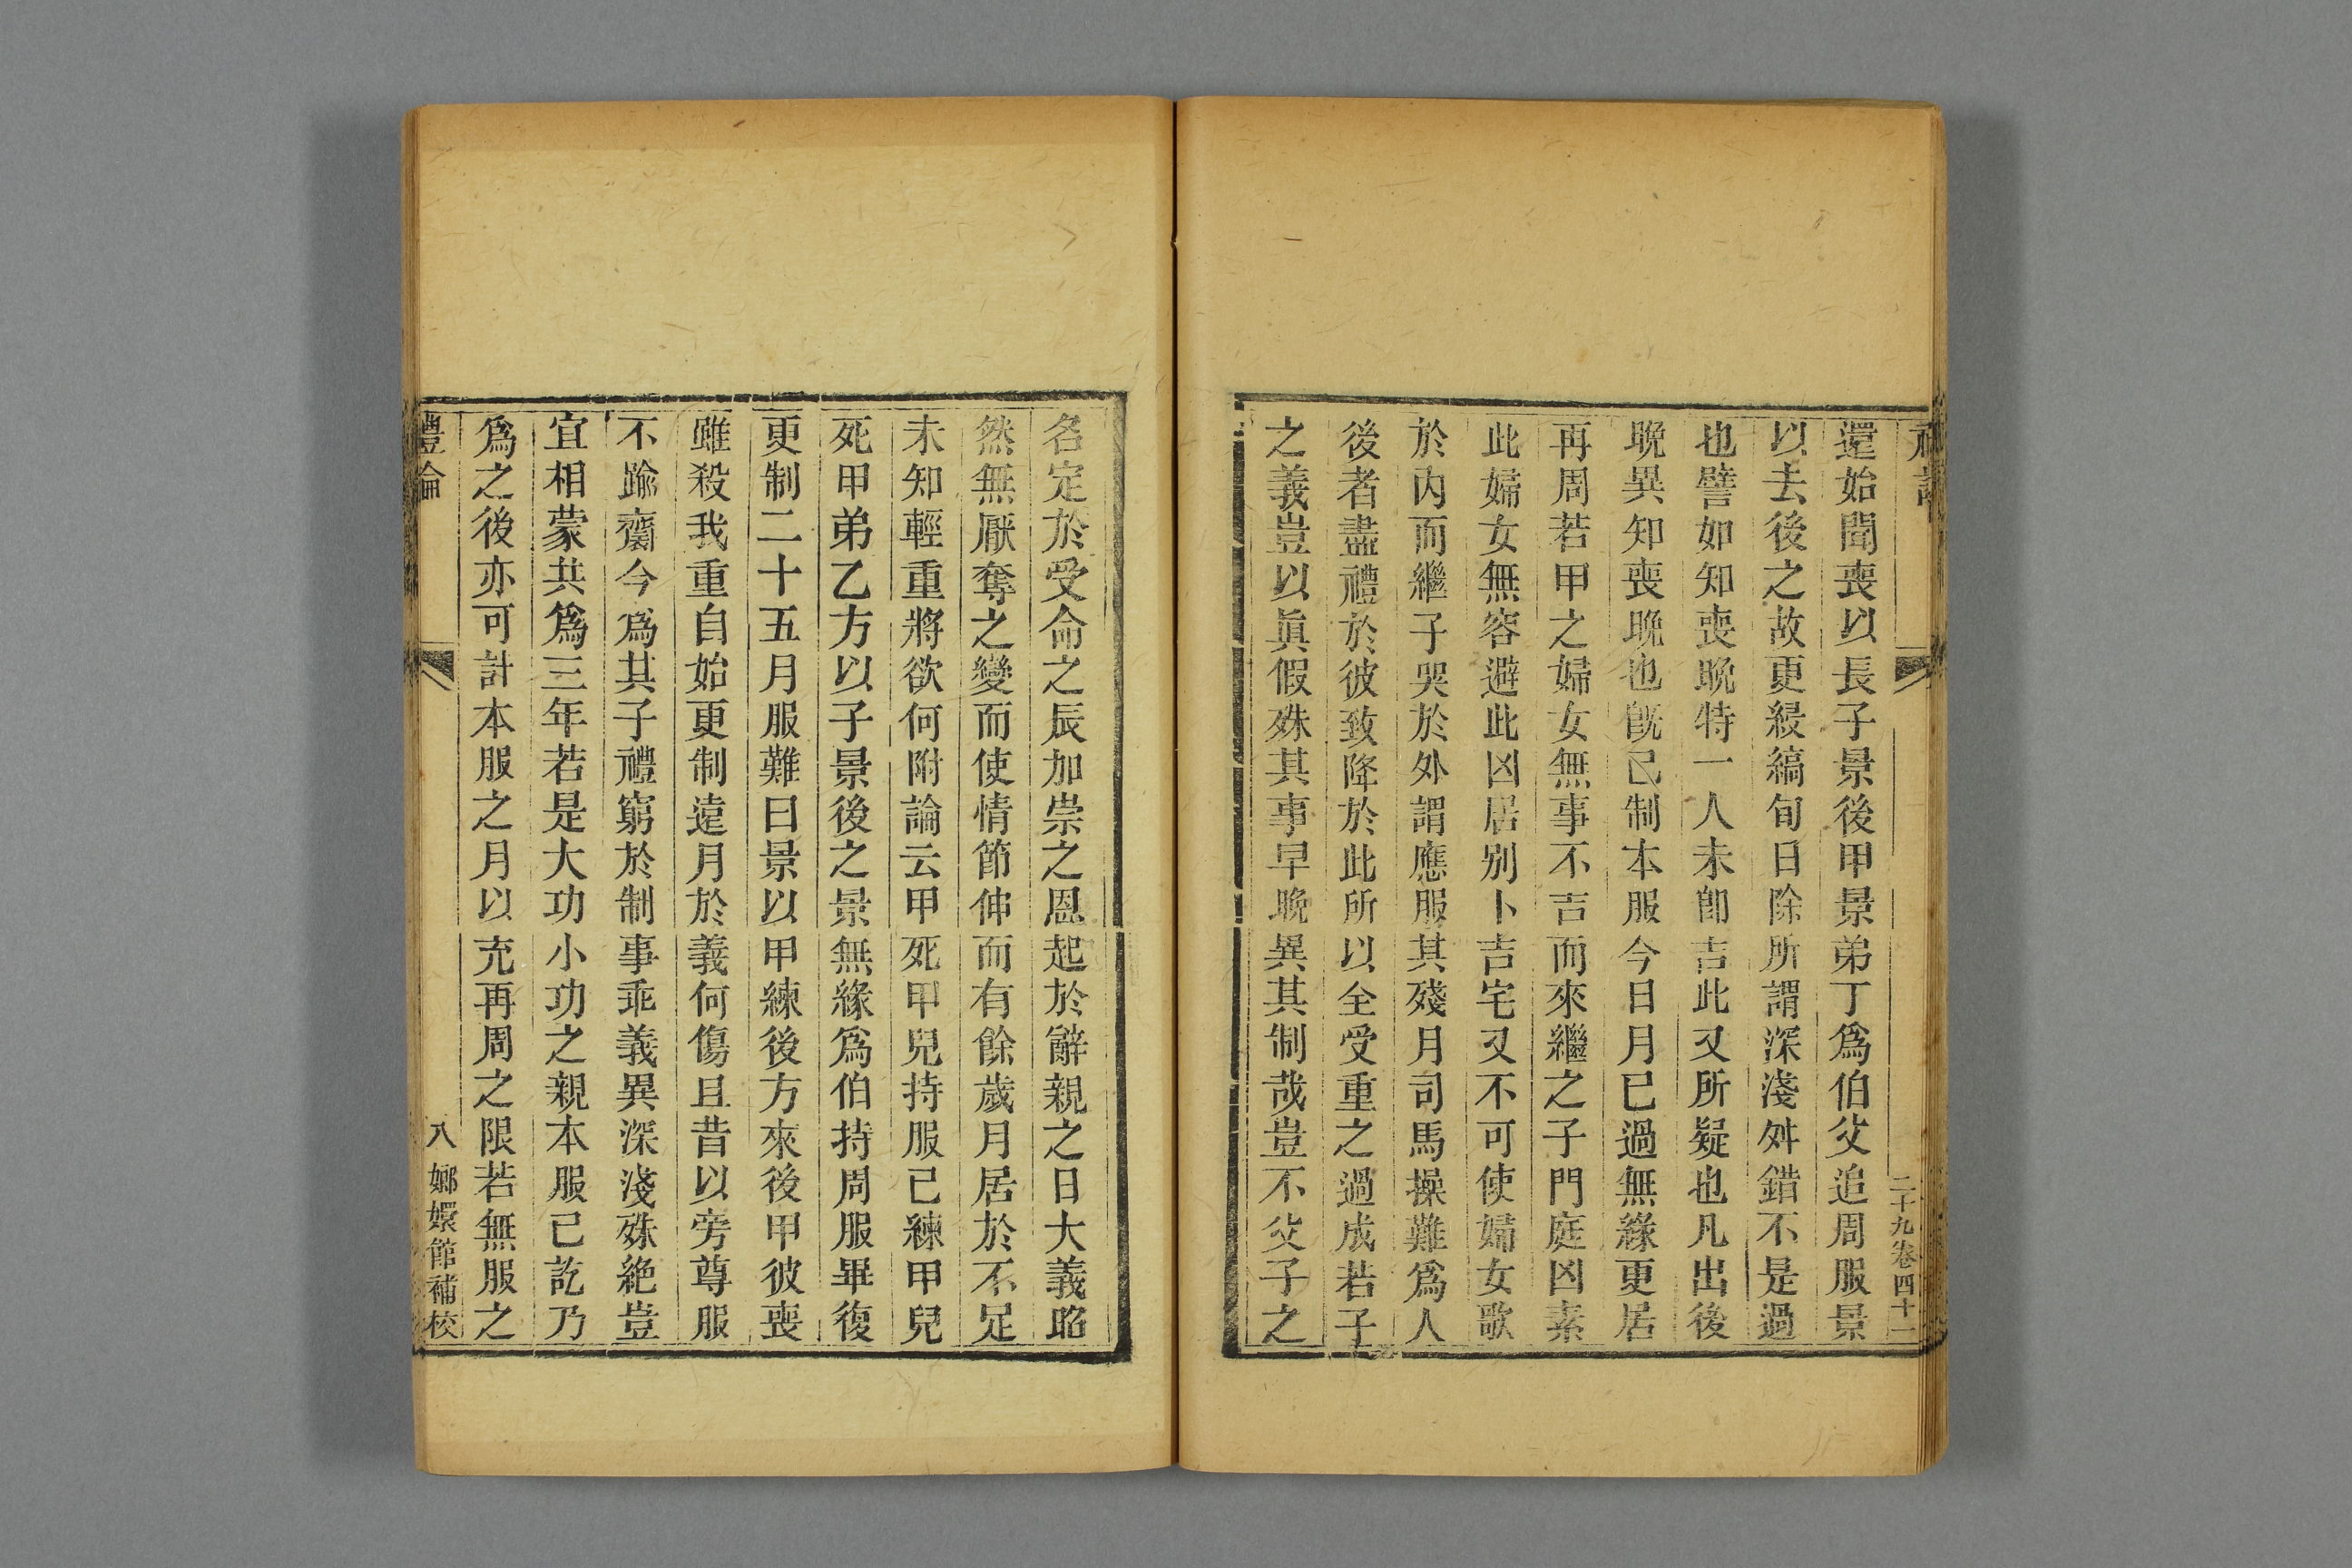 二十九卷四十一
還始聞喪以長子景後甲景弟丁爲伯父追周服景
以去後之故更縗縞旬日除所謂深淺舛錯不是過
也譬如知喪晚特一人未卽吉此又所疑也凡出後
晚異知喪晚也旣已制本服今日月已過無緣更居
再周若甲之婦女無事不吉而來繼之子門庭凶素
此婦女無容避此凶居別卜吉宅又不可使婦女歌
於內而繼子哭於外謂應服其殘月司馬操難爲人
後者盡禮於彼致降於此所以全受重之過成若子
之義豈以眞假殊其事早晚異其制哉豈不父子之
名定於受命之辰加崇之恩起於辭親之日大義昭
然無厭奪之變而使情節伸而有餘歲月居於不足
未知輕重將欲何附論云甲死甲兒持服已練甲兒
死甲弟乙方以子景後之景無緣爲伯持周服畢復
更制二十五月服難曰景以甲練後方來後甲彼喪
雖殺我重自始更制遠月於義何傷且昔以旁尊服
不踰齊今爲其子禮窮於制事乖義異深淺殊絶豈
宜相蒙共爲三年若是大功小功之親本服已訖乃
爲之後亦可計本服之月以充再周之限若無服之
禮論
八
嫏嬛館補校